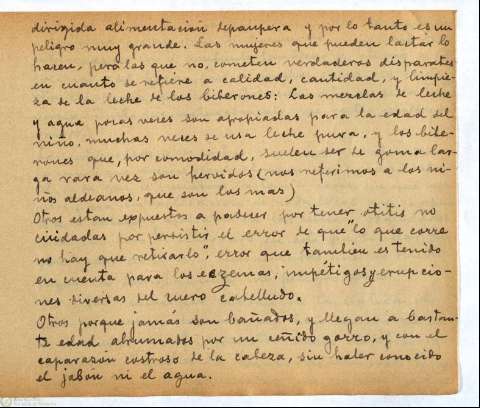 dirigida alimentación depaupera y por lo tanto es un
peligro muy grande. Las mujeres que pueden lactar lo
hacen, pero las que no, cometen verdaderos disparates
en cuanto se refiere a calidad, cantidad, y limpie-
za de la leche de los biberones: Las mezclas de leche
y agua pocas veces son apropiadas para la edad del
niño, muchas veces se usa leche pura, y los bibe-
rones que, por comodidad, suelen ser de goma lar-
ga rara vez son hervidos (nos referimos a los ni-
ños aldeanos, que son los mas)
Otros estan expuestos a padecer por tener otitis no
cuidadas por persistir el error de que "lo que corre
no hay que retirarlo", error que tambien es tenido
en cuenta para los eczemas, impétigos y erupcio-
nes diversas del cuero cabelludo.
Otros porque jamás son bañados, y llegan a bastan-
te edad abrumados por un ceñido gorro, y con el
caparazón costroso de la cabeza, sin haber conocido
el jabón ni el agua.